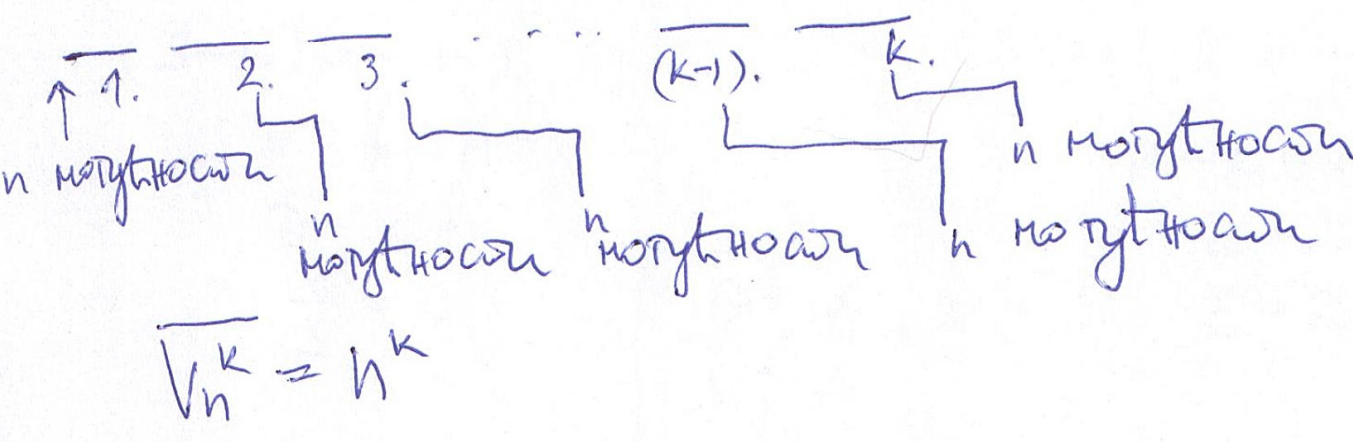 1. 2. 3. . . . . (k-1). k.
n могућности n могућности
n могућности n могућности n могућности
V̅ₙᵏ = nᵏ